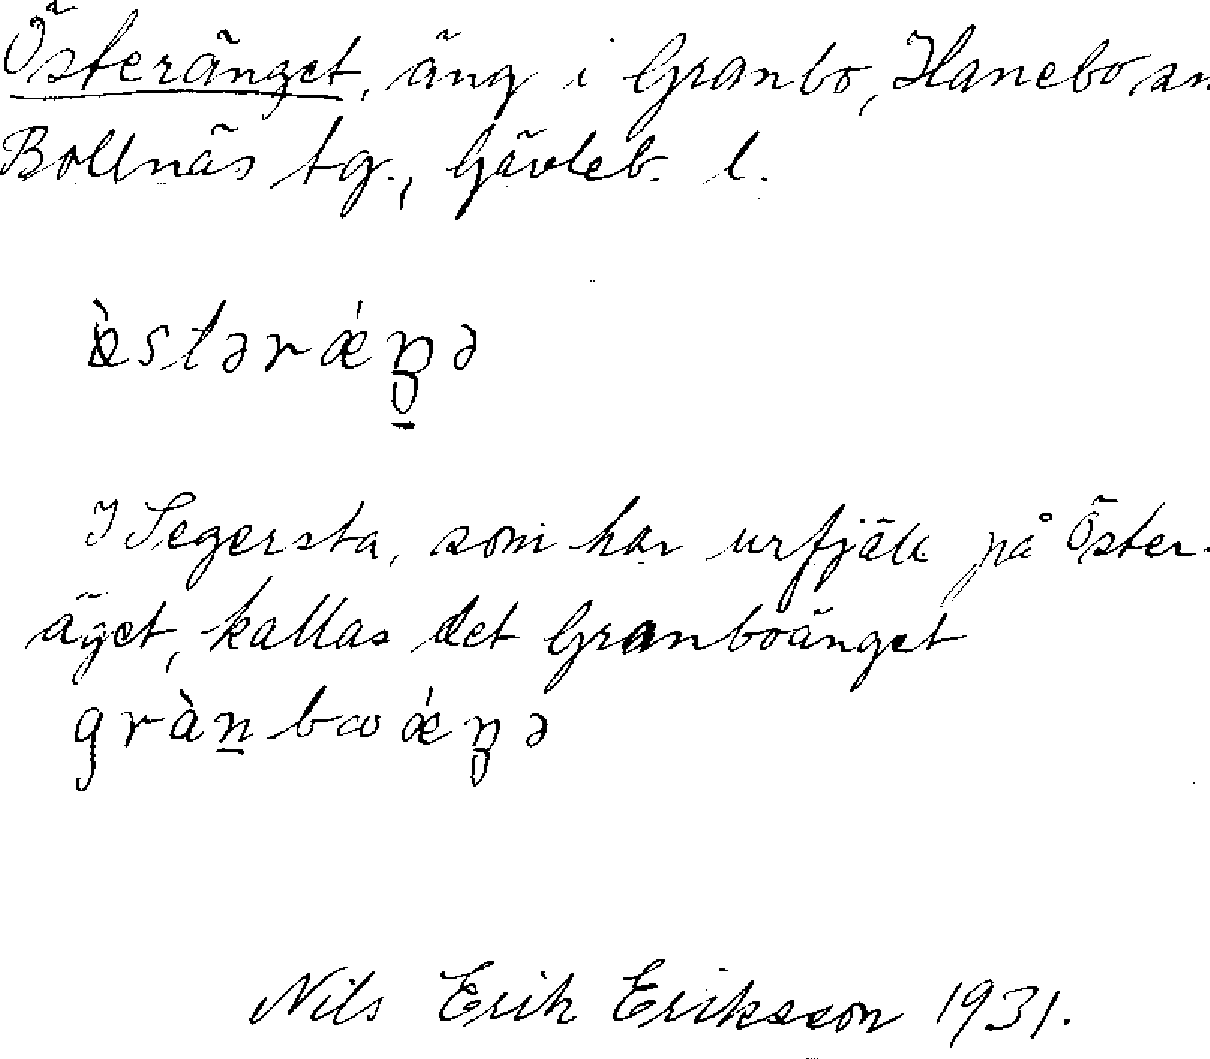 Österänget, äng i Granbo, Hanebo sn
Bollnäs tg., Gävleb. l.
æ̀stərǽŋə
I Segersta, som har urfjäll på Öster-
äget, kallas det Granboänget
gràn̠bωǽŋə
Nils Erik Eriksson 1931.